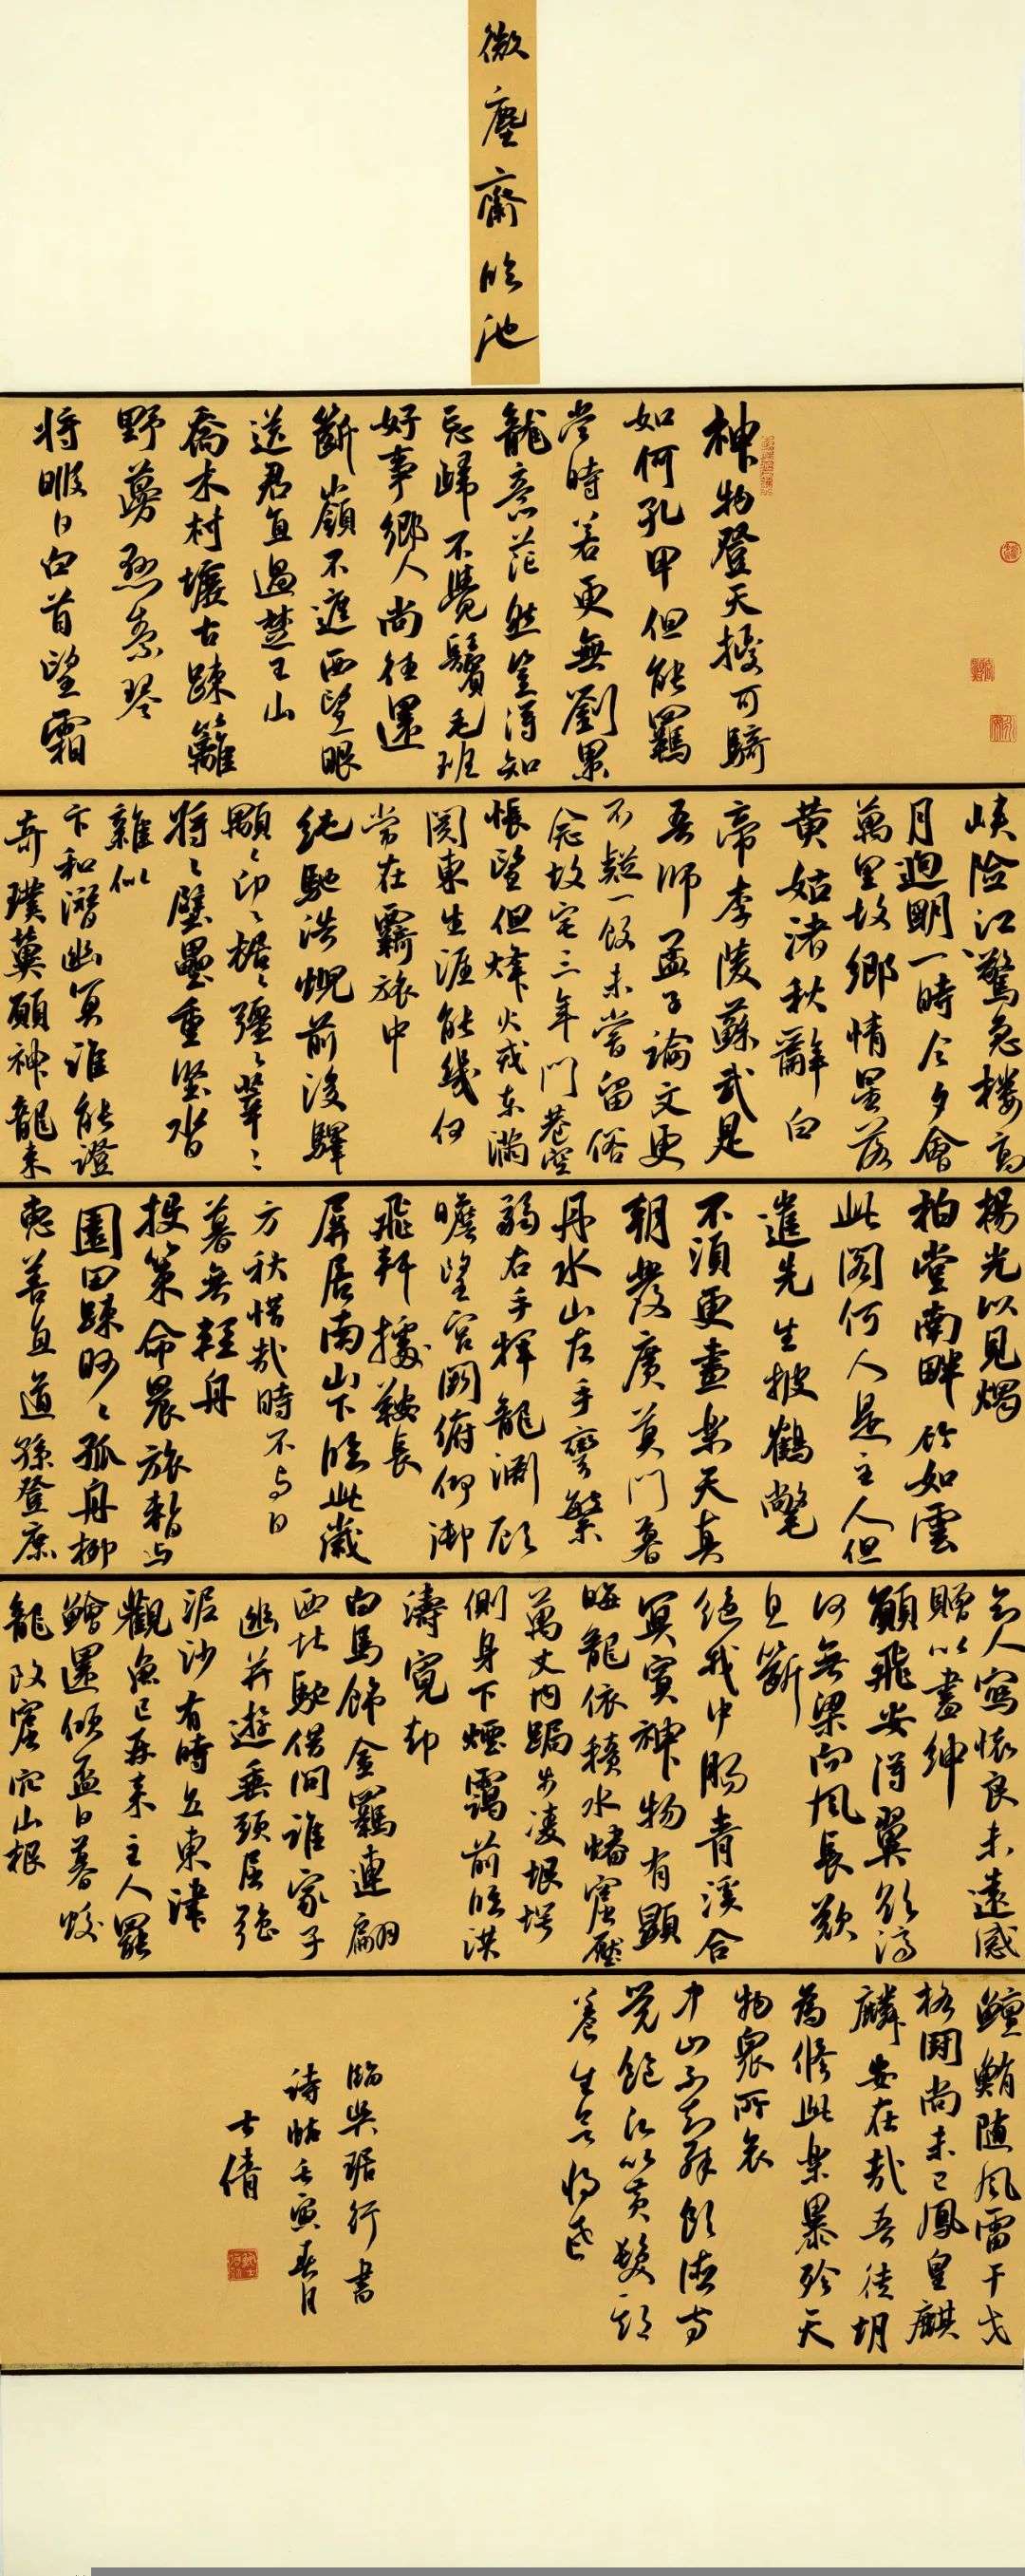 微塵齋臨池
神物登天擾可騎
如何孔甲但能羈
當時若更無劉累
龍意茫然豈得知
忘歸不覺鬢毛班
好事鄉人尚往還
斷嶺不遮西望眼
送君直過楚王山
喬木村墟古疎籬
野蔓懸素琴
將暇日白首望霜
峽險江驚急樓高
月迥明一時今夕會
萬里故鄉情星落
黃姑渚秋辭白
帝李陵蘇武是
吾師孟子論文更
不疑一飯未嘗留俗
念故宅三年門巷空
悵望但烽火戎車滿
關東生涯能幾何
常在羈旅中
純馳浩蜺前後驛
顒〻卬〻椐〻彊〻莘〻
將〻壁壘重堅沓
雜似
卞和潛幽冥誰能證
奇璞冀願神龍來
楊光以見燭
柏堂南畔竹如雲
此閣何人是主人但
遣先生披鶴氅
不須更畫樂天真
朝發廣莫門暮
丹水山左手彎繁
弱右手揮龍淵顧
瞻望宮闕俯仰御
飛軒據鞍長
屏居南山下臨此歲
方秋惜哉時不與日
暮無輕舟
投策命晨旅暫與
園田疎眇〻孤舟
惠善直道孫登庶
知人寫懷良未遠感
贈以書紳
願飛安得翼欲濟
河無梁向風長歎
息斷
絕我中腸青溪合
冥寞神物有顯
晦龍依積水蟠窟壓
萬丈內跼步凌垠堮
側身下煙靄前臨洪
濤寬却
白馬飾金羈連翩
西北馳借問誰家子
幽并遊垂頭屈強
泥沙有時立東津
觀魚已再來主人罷
鱠還傾盃日暮蛟
龍改窟穴山根
鱣鮪隨風雷干戈
格鬪尚未已鳳皇麒
麟安在哉吾徒胡
為縱此樂暴殄天
物眾所哀
養生
臨吳琚行書
詩帖壬寅春月
士倩